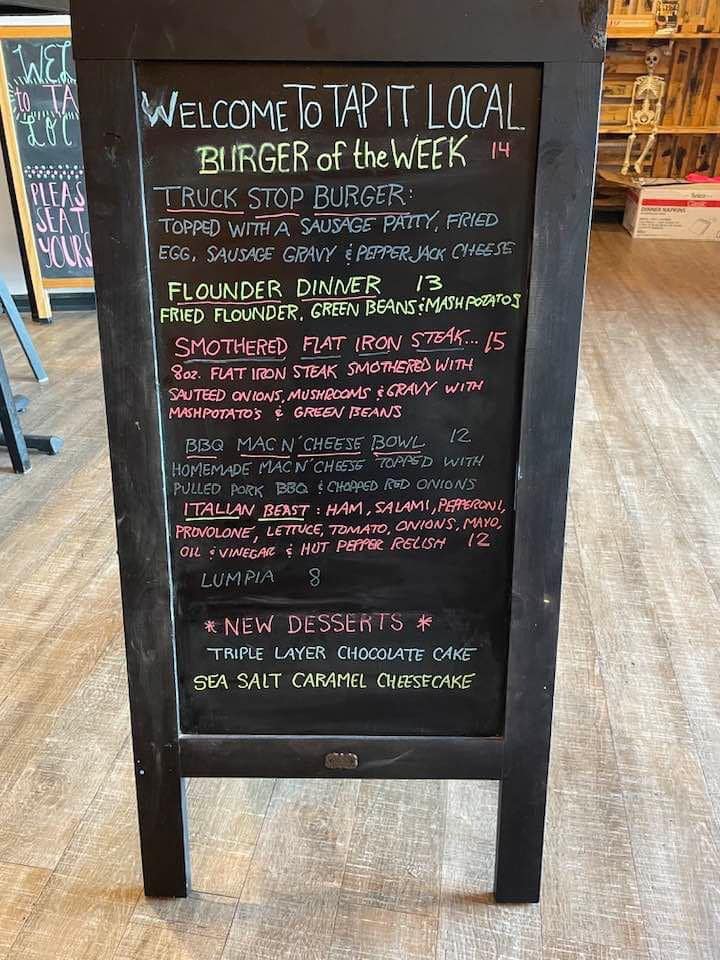 WELCOME TO TAP IT LOCAL
BURGER of the WEEK 14
TRUCK STOP BURGER:
TOPPED WITH A SAUSAGE PATTY, FRIED
EGG, SAUSAGE GRAVY & PEPPER JACK CHEESE
FLOUNDER DINNER 13
FRIED FLOUNDER, GREEN BEANS & MASHPOTATO'S
SMOTHERED FLAT IRON STEAK... 15
8oz. FLAT IRON STEAK SMOTHERED WITH
SAUTEED ONIONS, MUSHROOMS & GRAVY WITH
MASHPOTATO'S & GREEN BEANS
BBQ MAC N' CHEESE BOWL 12
HOMEMADE MAC N' CHEESE TOPPED WITH
PULLED PORK BBQ & CHOPPED RED ONIONS
ITALIAN BEAST: HAM, SALAMI, PEPPERONI,
PROVOLONE, LETTUCE, TOMATO, ONIONS, MAYO,
OIL & VINEGAR & HOT PEPPER RELISH 12
LUMPIA 8
* NEW DESSERTS *
TRIPLE LAYER CHOCOLATE CAKE
SEA SALT CARAMEL CHEESECAKE
WEL
to TA
LOC
PLEAS
SEAT
YOURS
DINNER NAPKINS